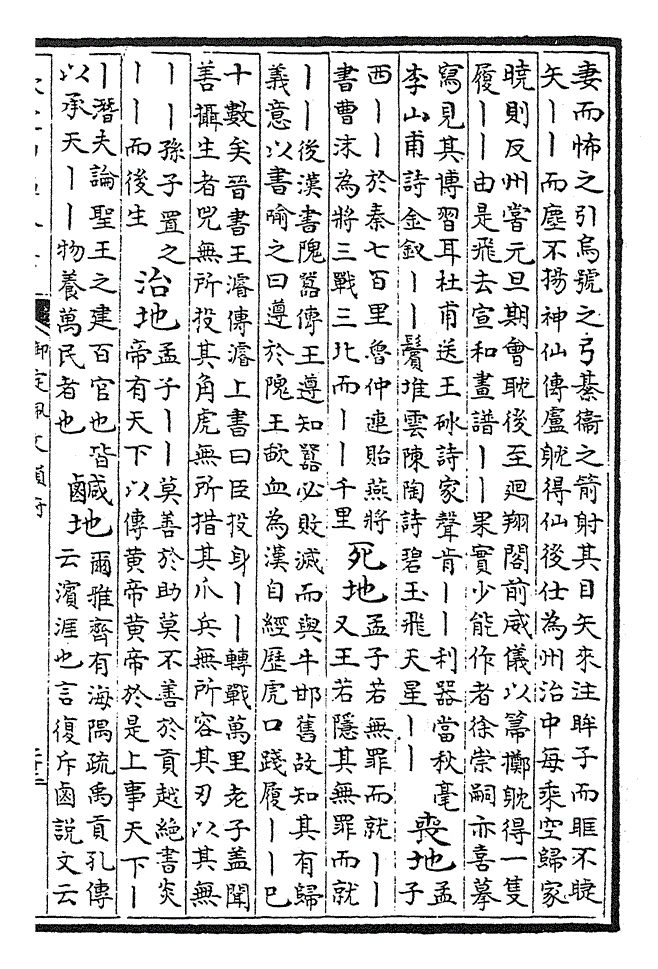 妻而怖之引烏號之弓綦衞之箭射其目矢來注眸子而眶不睫
矢丨丨而塵不揚神仙傳盧躭得仙後仕為州治中毎乘空歸家
曉則反州嘗元旦期會躭後至廻翔閣前威儀以箒擲躭得一隻
履丨丨由是飛去宣和畫譜丨丨果實少能作者徐崇嗣亦喜摹
寫見其博習耳杜甫送王砅詩家聲肯丨丨利器當秋毫
李山甫詩金釵丨丨鬢堆雲陳陶詩碧玉飛天星丨丨
喪地
孟
子
西丨丨於秦七百里魯仲連貽燕將
書曹沫為將三戰三北而丨丨千里
死地
孟子若無罪而就丨丨
又王若隱其無罪而就
丨丨後漢書隗囂傳王遵知囂必敗滅而與牛邯舊故知其有歸
義意以書喻之曰遵於隗王歃血為漢自經歴虎口踐履丨丨已
十數矣晉書王濬傳濬上書曰臣投身丨丨轉戰萬里老子蓋聞
善攝生者兕無所投其角虎無所措其爪兵無所容其刃以其無
丨丨孫子置之
丨丨而後生
治地
孟子丨丨莫善於助莫不善於貢越絶書炎
帝有天下以傳黄帝黄帝於是上事天下丨
丨潛夫論聖王之建百官也皆
以承天丨丨物養萬民者也
鹹地
爾雅齊有海隅疏禹貢孔傳
云濱涯也言復斥鹵說文云
御定佩文韻府